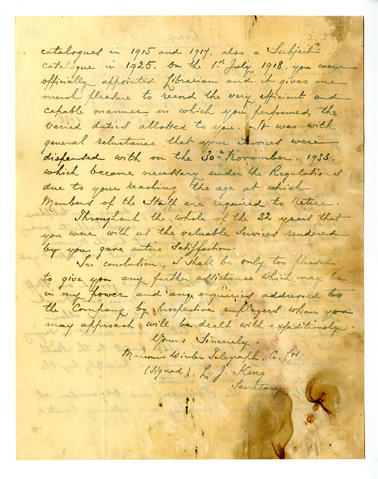 catalogues in 1915 and 1917, also a "Subject"
catalogue in 1925. On the 1st July, 1918, you were
officially appointed Librarian and it gives one
much pleasure to record the very efficient and
capable manner in which you performed the
varied duties allotted to you. It was with
general reluctance that your services were
dispensed with on the 30th November, 1933,
which became necessary under the Regulations
due to your reaching the age at which
Members of the Staff are required to retire.
Throughout the whole of the 22 years that
you were with us the valuable services rendered
by you gave entire satisfaction.
In conclusion, I shall be only too pleased
to give you any further assistance which may be
in my power and any enquiries addressed to
the Company by prospective employers whom you
may approach will be dealt with expeditiously.
Yours Sincerely,
Marconis Wireless Telegraph Co. Ltd.
(Signed). L. J. King
Secretary